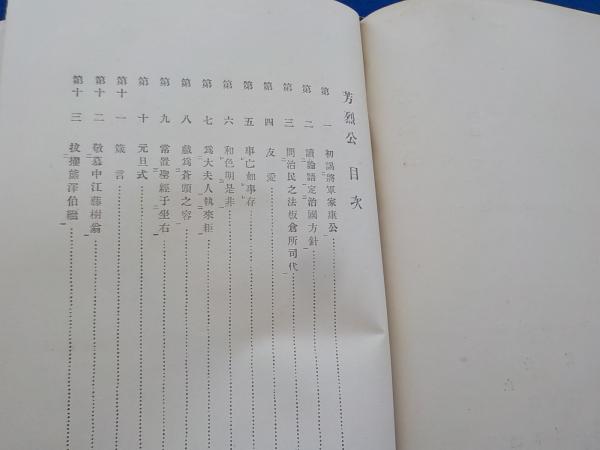 芳烈公 目次
第一 初謁將軍家康公
第二 讀論語定治國方針
第三 問治民之法板倉所司代
第四 友愛
第五 事亡如事存
第六 和色明是非
第七 爲大夫人執來耟
第八 戲爲蒼頭之容
第九 常置聖經于坐右
第十 元旦式
第十一 箴言
第十二 敬慕中江藤樹翁
第十三 拔擢熊澤伯繼